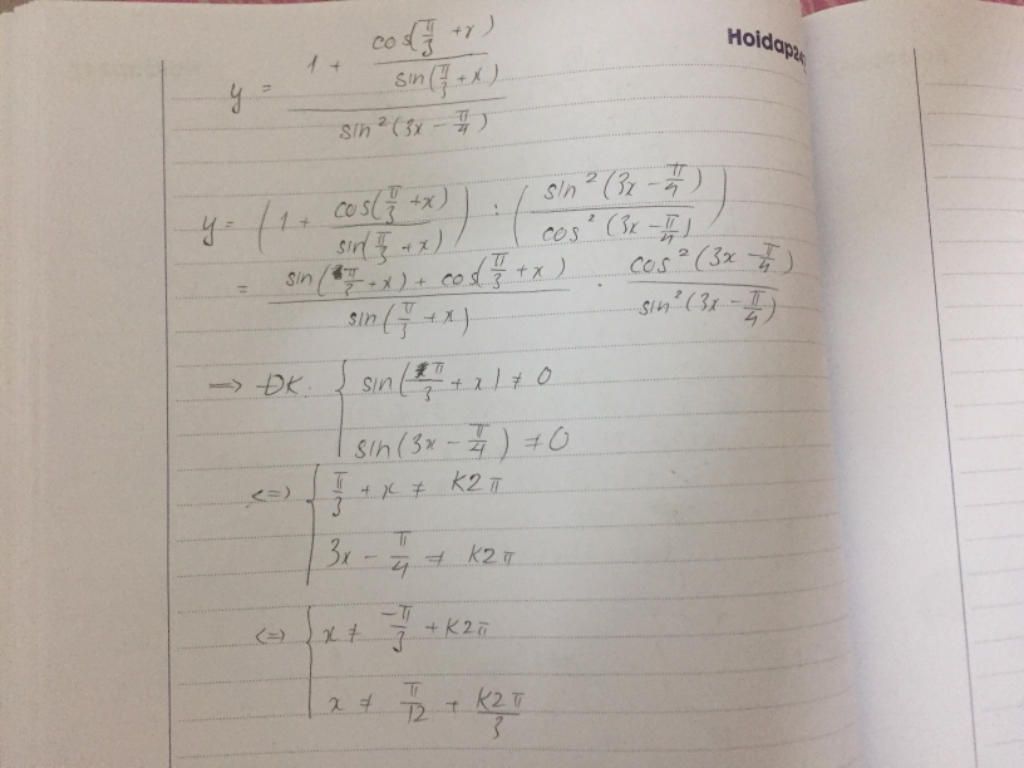 Hoidap24
y = (1 + cos(π/3 + x) / sin(π/3 + x)) / sin²(3x - π/4)
y = (1 + cos(π/3 + x) / sin(π/3 + x)) : (sin²(3x - π/4) / cos²(3x - π/4))
= (sin(π/3 + x) + cos(π/3 + x)) / sin(π/3 + x) . cos²(3x - π/4) / sin²(3x - π/4)
=> ĐK: { sin(π/3 + x) ≠ 0
sin(3x - π/4) ≠ 0
<=> { π/3 + x ≠ K2π
3x - π/4 ≠ K2π
<=> { x ≠ -π/3 + K2π
x ≠ π/12 + K2π/3